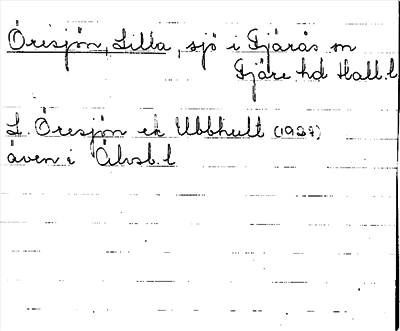 Örisjön, Lilla, sjö i Fjärås sn
Fjäre hd Hall. l
L. Öresjön ek Ubbhult (1934)
även i Älvsb. l